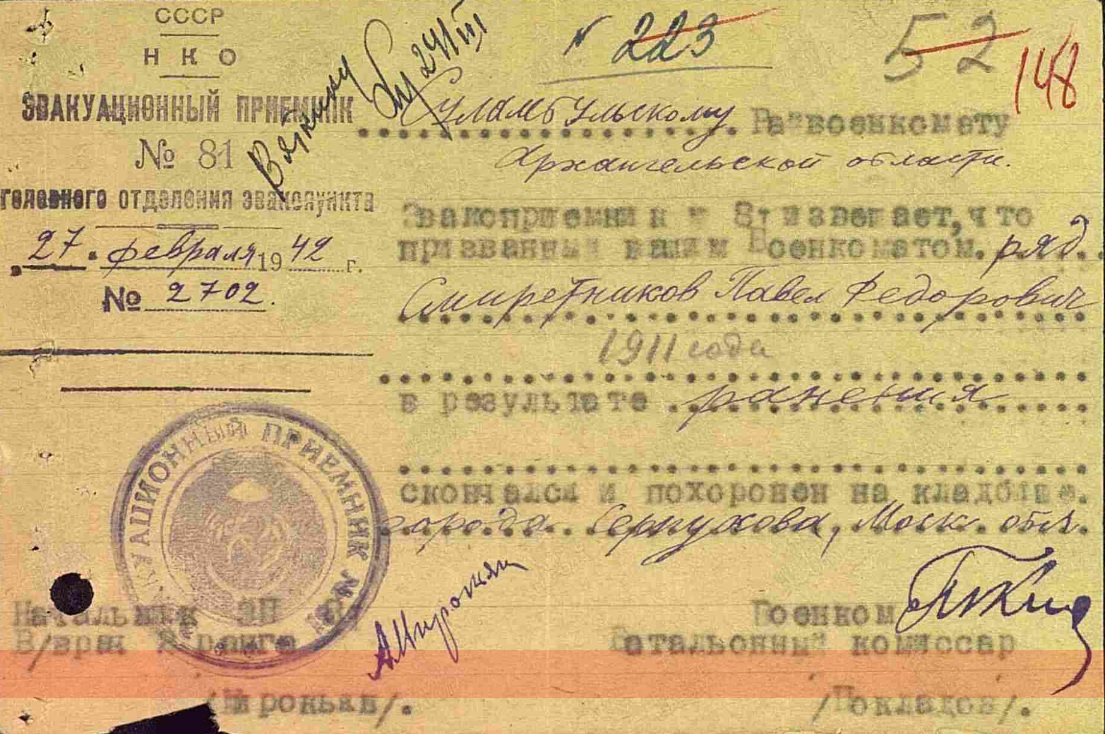 СССР
НКО
ЭВАКУАЦИОННЫЙ ПРИЕМНИК
№ 81
головного отделения эвакопункта
27 февраля 1942 г.
№ 2702.
Вяткину
24/III
№ 223
52
148
Суламбульскому Райвоенкомату
Архангельской области.
Эвакоприемник № 81 извещает, что
призванный вашим Военкоматом. ряд.
Смиретников Павел Федорович
1911 года
в результате ранения
скончался и похоронен на кладбище.
города Серпухова, Моск. обл.
ЭВАКУАЦИОННЫЙ ПРИЕМНИК № 81
Начальник ЭП 81
В/врач 2 ранга
АМиронян
/Мироньян/.
Военком
Батальонный комиссар
/Покладов/.